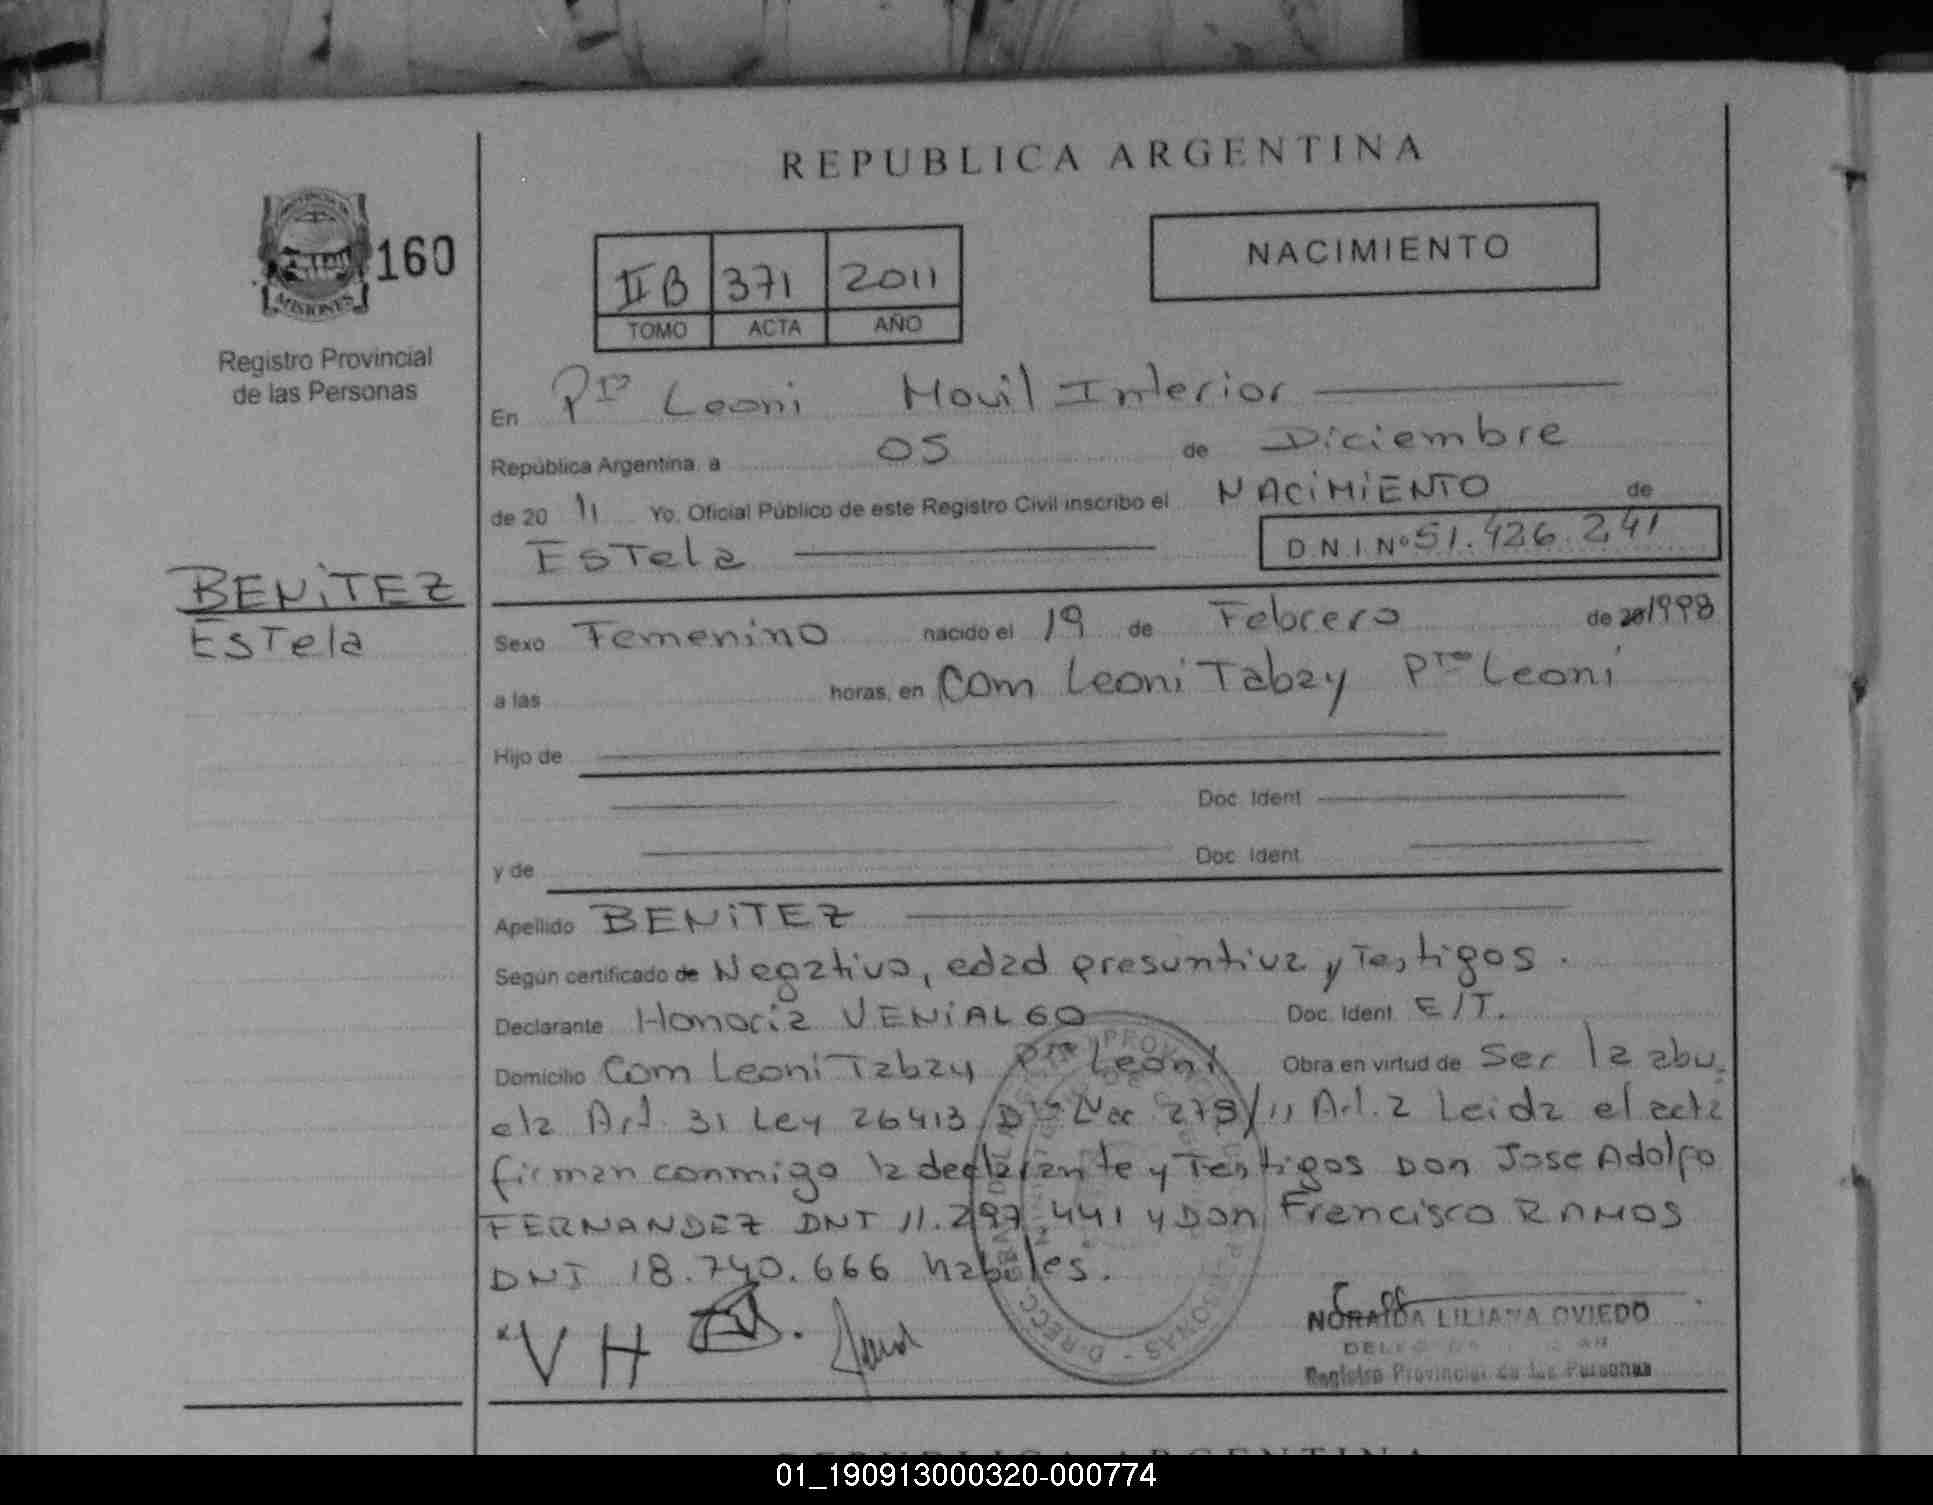 REPUBLICA ARGENTINA
MISIONES
160
Registro Provincial
de las Personas
II B 371 2011
TOMO ACTA AÑO
NACIMIENTO
En Pto Leoni Movil Interior
República Argentina, a 05 de Diciembre
de 20 11 Yo, Oficial Público de este Registro Civil inscribo el NACiMiENTO de
EsTela
D.N.I. Nº 51.426.241
BENiTEZ
EsTela
Sexo Femenino nacido el 19 de Febrero de 20 1998
a las horas, en Com Leoni Tabay Pto Leoni
Hijo de
Doc. Ident.
y de Doc. Ident.
Apellido BENiTEZ
Según certificado de Negativo, edad presuntiva y Testigos.
Declarante Honoria VENiALGO Doc. Ident. E/T.
Domicilio Com Leoni Tabay Pto Leoni Obra en virtud de Ser la abu.
ela Art. 31 Ley 26413 Nac 278/11 Art. 2 Leida el acta
firman conmigo la declarante y Testigos Don Jose Adolfo
FERNANDEZ DNI 11.297.441 y Don Francisco RAMOS
DNI 18.740.666 habiles.
VH
NORAIDA LILIANA OVIEDO
Registro Provincial de las Personas
REPUBLICA ARGENTINA
01_190913000320-000774